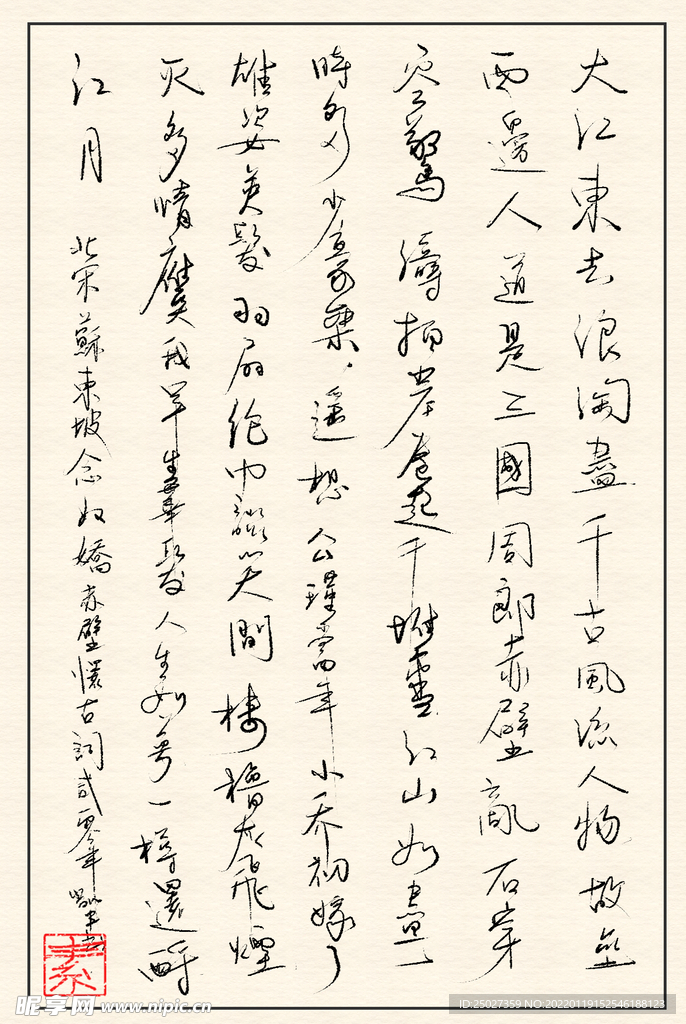 大江東去浪淘盡千古風流人物故壘
西邊人道是三國周郎赤壁亂石穿
空驚濤拍岸卷起千堆雪江山如畫一
時多少豪桀、遥想公瑾當年小乔初嫁了
雄姿英髮羽扇綸巾談笑間檣櫓灰飛煙
灭多情應笑我早生華髮人生如夢一樽還酹
江月 北宋蘇東坡念奴嬌赤壁懷古詞
昵享网 www.nipic.cn
ID:25027359 NO:20220119152546188123